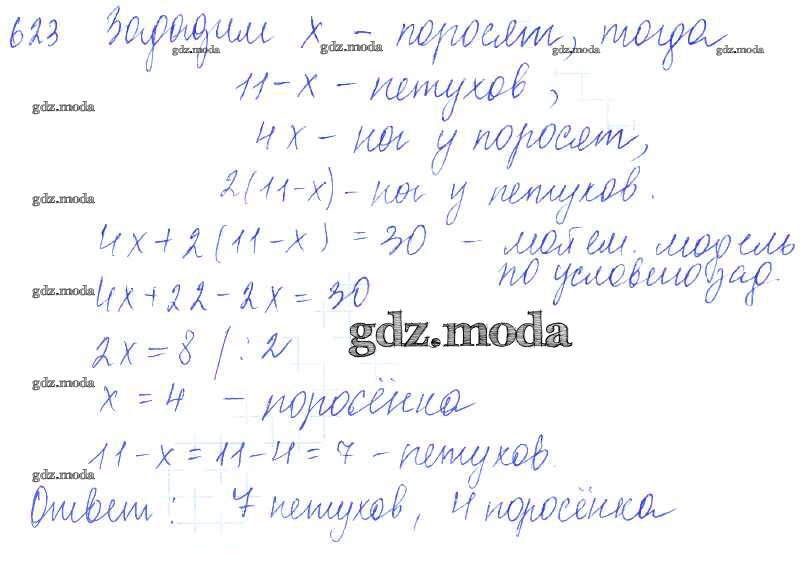 623 Зададим x – поросят, тогда
gdz.moda gdz.moda gdz.moda gdz.moda
11-x – петухов,
gdz.moda
4x – ног у поросят,
2(11-x) – ног у петухов.
gdz.moda
4x+2(11-x) = 30 – матем. модель
по условию зад.
gdz.moda
4x+22-2x=30
gdz.moda
2x=8 | :2
gdz.moda
x = 4 – поросёнка
11-x = 11-4 = 7 – петухов.
gdz.moda
Ответ: 7 петухов, 4 поросёнка